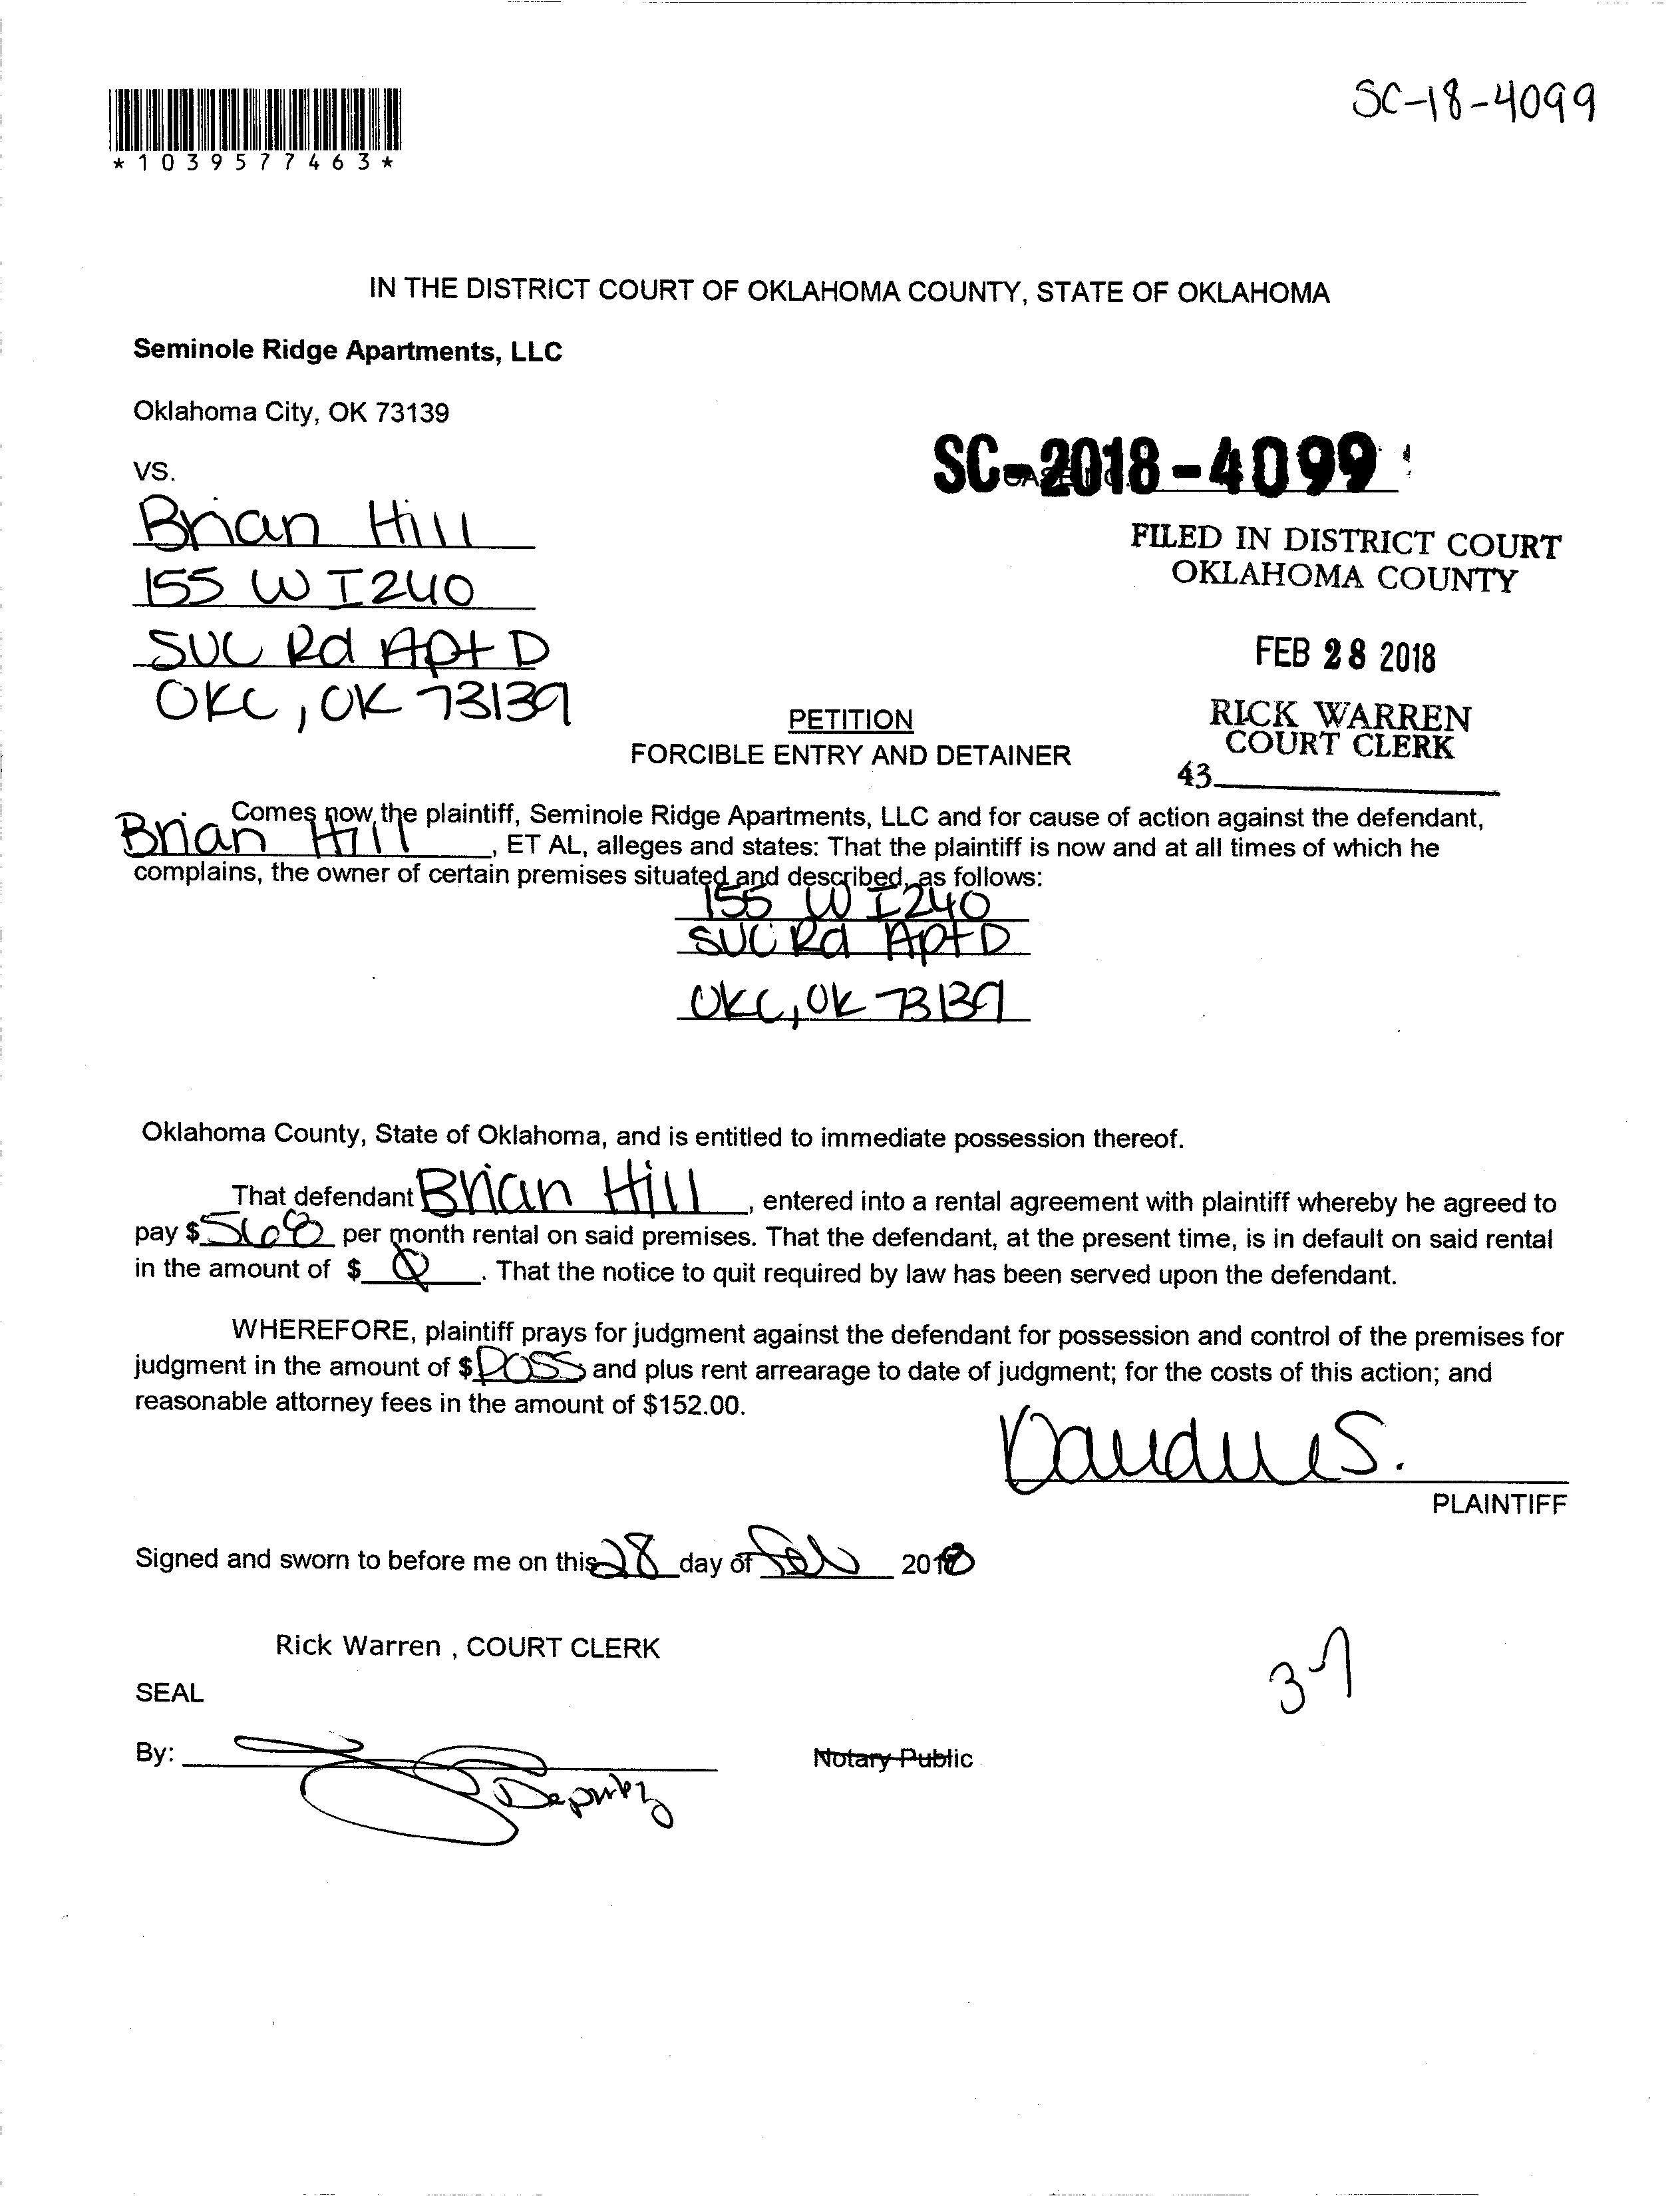 SC-18-4099
*1039577463*
IN THE DISTRICT COURT OF OKLAHOMA COUNTY, STATE OF OKLAHOMA
Seminole Ridge Apartments, LLC
Oklahoma City, OK 73139
SC-2018-4099
VS.
Brian Hill
155 W I240
SVC Rd Apt D
OKC, OK 73139
FILED IN DISTRICT COURT
OKLAHOMA COUNTY
FEB 28 2018
RICK WARREN
COURT CLERK
43
PETITION
FORCIBLE ENTRY AND DETAINER
Comes now the plaintiff, Seminole Ridge Apartments, LLC and for cause of action against the defendant,
Brian Hill, ET AL, alleges and states: That the plaintiff is now and at all times of which he
complains, the owner of certain premises situated and described, as follows:
155 W I240
SVC Rd Apt D
OKC, OK 73139
Oklahoma County, State of Oklahoma, and is entitled to immediate possession thereof.
That defendant Brian Hill, entered into a rental agreement with plaintiff whereby he agreed to
pay $568 per month rental on said premises. That the defendant, at the present time, is in default on said rental
in the amount of $ 0. That the notice to quit required by law has been served upon the defendant.
WHEREFORE, plaintiff prays for judgment against the defendant for possession and control of the premises for
judgment in the amount of $poss and plus rent arrearage to date of judgment; for the costs of this action; and
reasonable attorney fees in the amount of $152.00.
PLAINTIFF
Signed and sworn to before me on this 28 day of Feb 2018
Rick Warren , COURT CLERK
37
SEAL
By:
Notary Public
Deputy